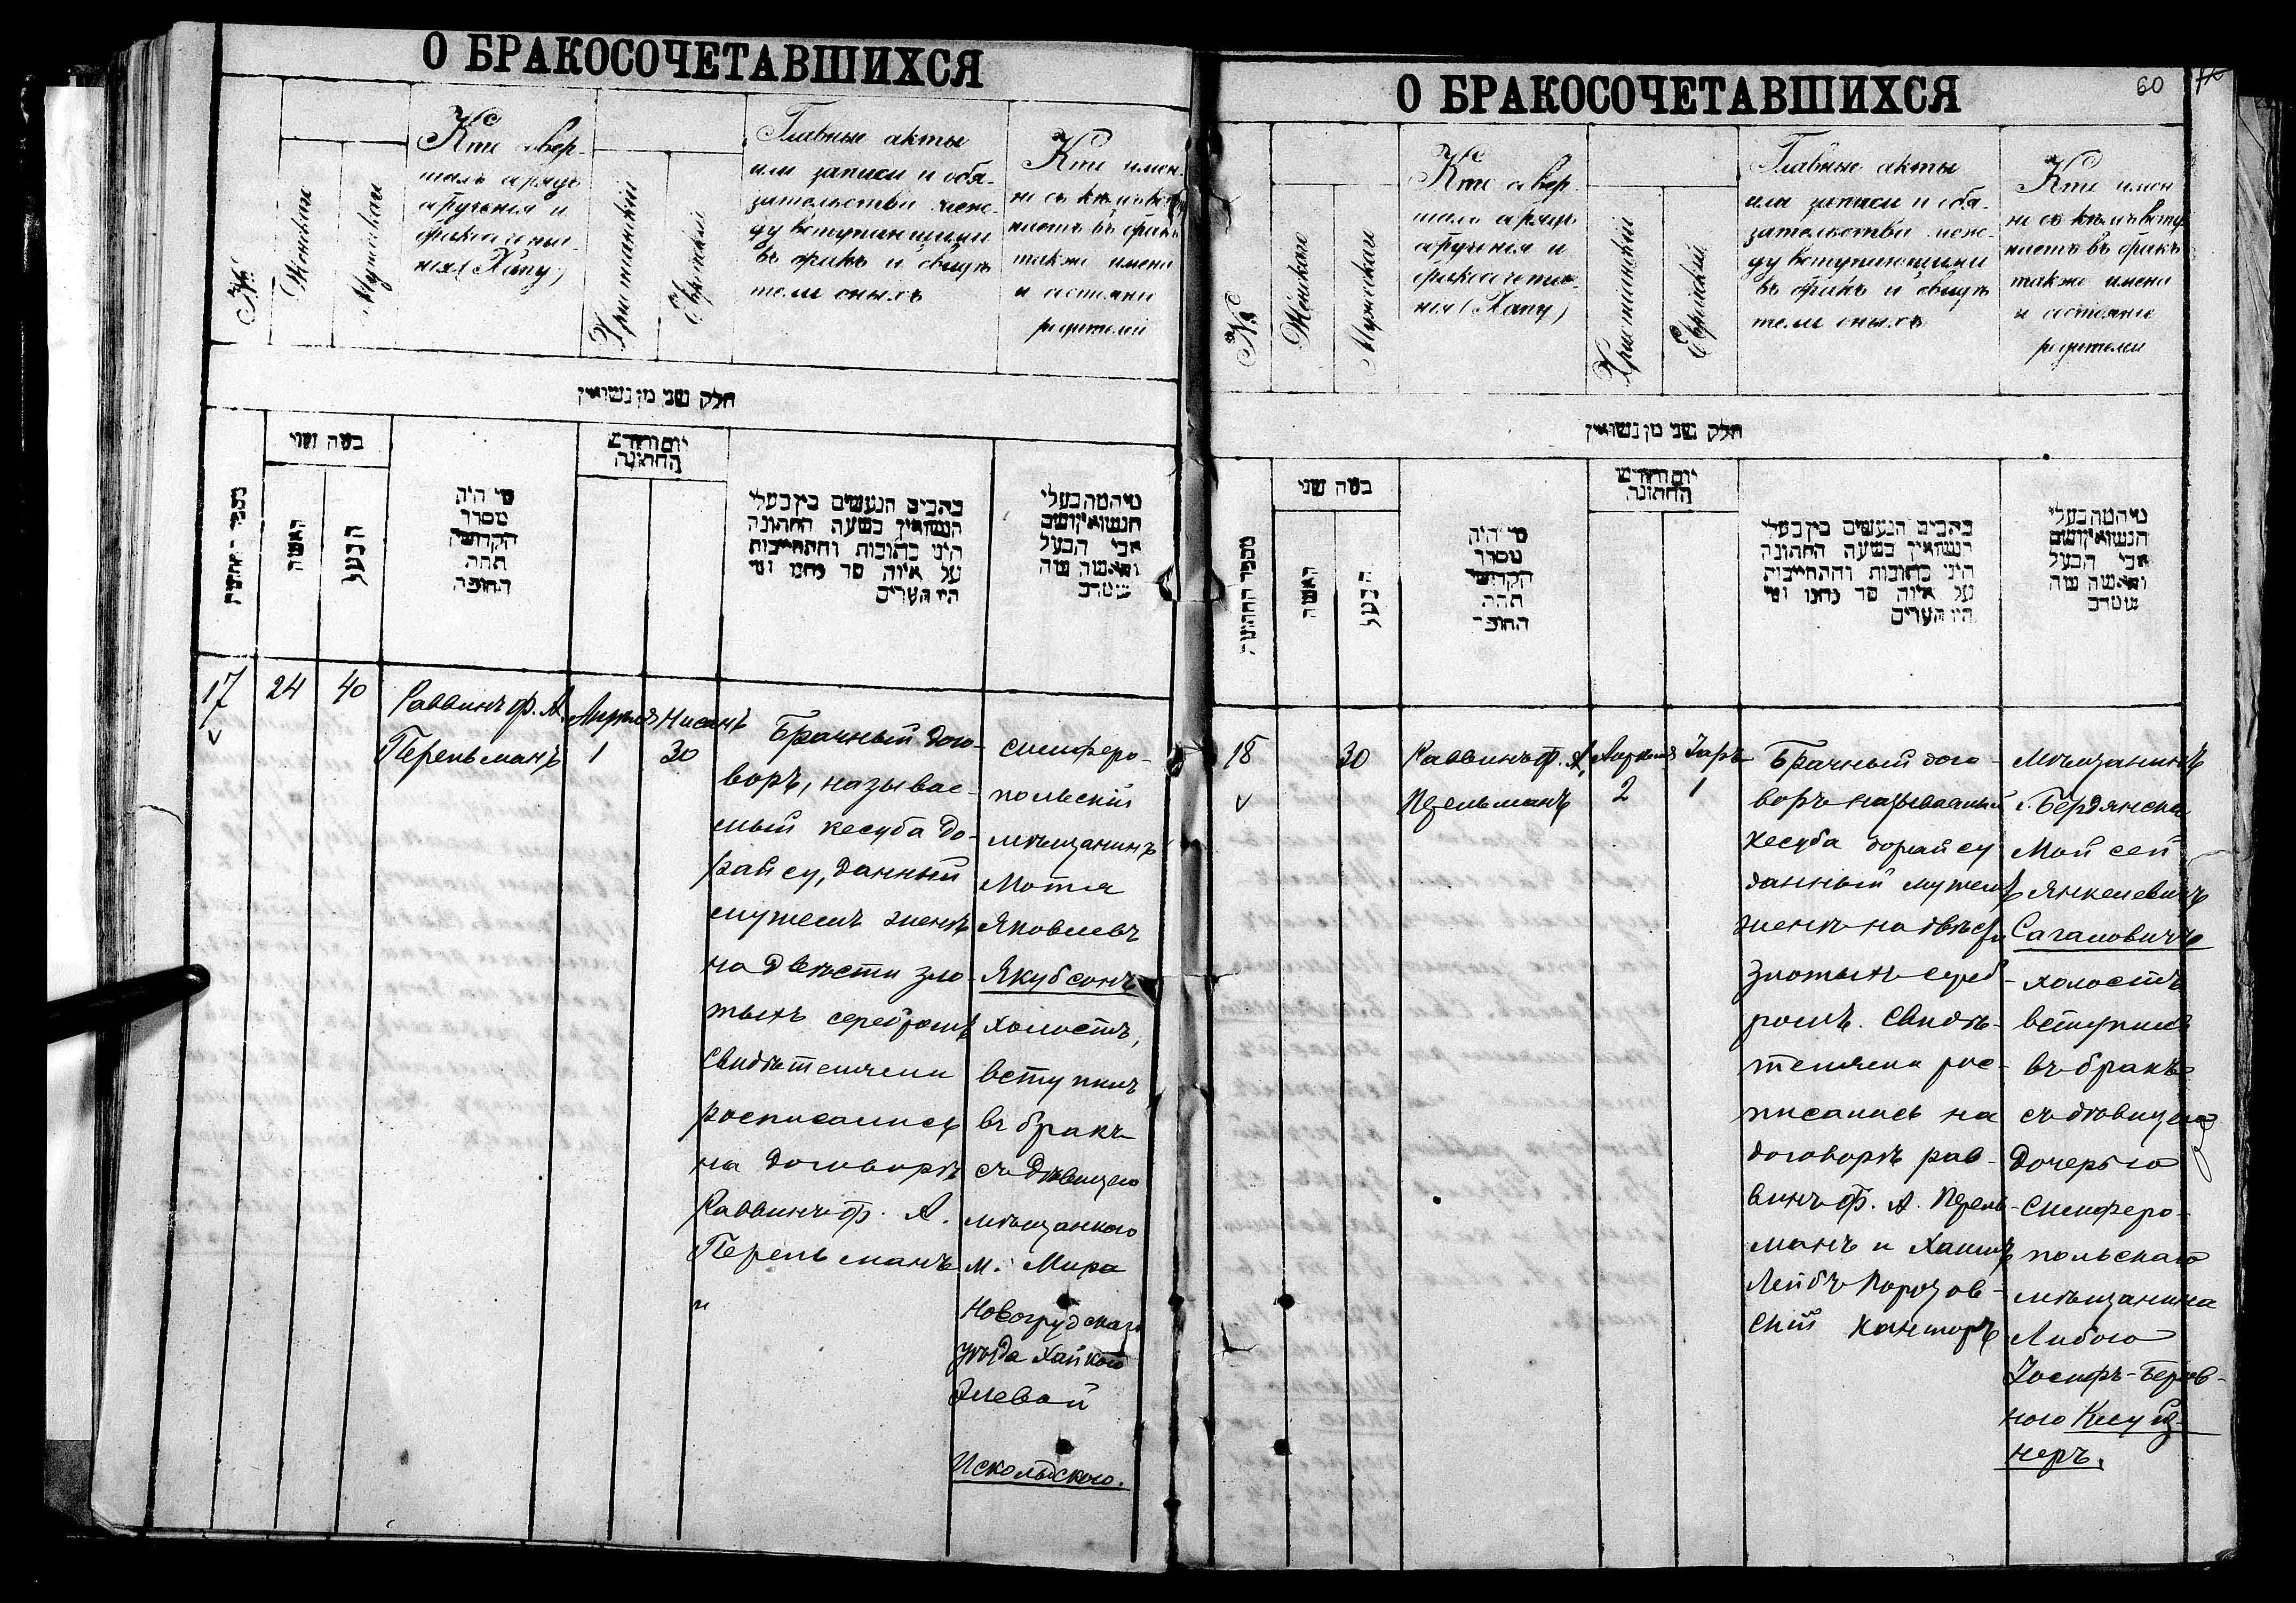 О БРАКОСОЧЕТАВШИХСЯ
№
Женская
Мужеская
Кто совер-
шалъ обрядъ
обрученія и
бракосочета-
нія (Хупу)
Христіанскій
Еврейскій
Главные акты
или записи и обя-
зательства меж-
ду вступающими
въ бракъ и свидѣ
тели оныхъ
Кто имен-
но съ кѣмъ всту
паетъ въ бракъ
также имена
и состояніе
родителей
חלק שני מן נשואין
מספר החתונה
כמה שני
האשה
הבעל
מי היה
מסדר
הקדושין
תחת
החופה
יום וחודש
החתונה
כתבים הנעשים בין בעלי
הנשואין בשעת החתונה
היינו כתובות והתחייבות
על איזה סך נתנו ומי
היו העדים
17
24
40
Раввинъ ф. А.
Перельманъ
Апрѣль
1
Нисанъ
30
Брачный дого-
воръ, называе-
мый кесуба до-
райсу, данный
мужемъ женѣ
на двѣсти зло-
тыхъ серебромъ
Свидѣтелями
росписались
на договорѣ
Раввинъ ф. А.
Перельманъ
и
симферо-
польскій
мѣщанинъ
Мотля
Яковлевъ
Якубсонъ
холостъ,
вступилъ
въ бракъ
съ дѣвицею
мѣщанкою
м. Мира
Новогрудскаго
уѣзда Хайкою
Элевой
Искольдскою.
О БРАКОСОЧЕТАВШИХСЯ
60
№
Женская
Мужеская
Кто совер-
шалъ обрядъ
обрученія и
бракосочета-
нія (Хупу)
Христіанскій
Еврейскій
Главные акты
или записи и обя-
зательства меж-
ду вступающими
въ бракъ и свидѣ
тели оныхъ
Кто имен
но съ кѣмъ всту
паетъ въ бракъ
также имена
и состояніе
родителей
חלק שני מן נשואין
מספר החתונה
כמה שני
האשה
הבעל
מי היה
מסדר
הקדושין
תחת
החופה
יום וחודש
החתונה
כתבים הנעשים בין בעלי
הנשואין בשעת החתונה
היינו כתובות והתחייבות
על איזה סך נתנו ומי
היו העדים
18
30
Раввинъ ф. А.
Перельманъ
Апрѣля
2
Іаръ
1
Брачный дого-
воръ называемый
кесуба дорайсу
данный мужемъ
женѣ на двѣсти
злотыхъ сереб-
ромъ. Свидѣ-
телями рос-
писались на
договорѣ рав-
винъ ф. А. Перель-
манъ и Хаимъ
Лейбъ
скій канторъ
Мѣщанинъ
г. Бердянска
Мойсей
Янкелевичъ
Сагаловичъ
холостъ
вступилъ
въ бракъ
съ дѣвицею
дочерью
Симферо-
польскаго
мѣщанина
Либою
Іосифъ-Берков-
ною
неръ.